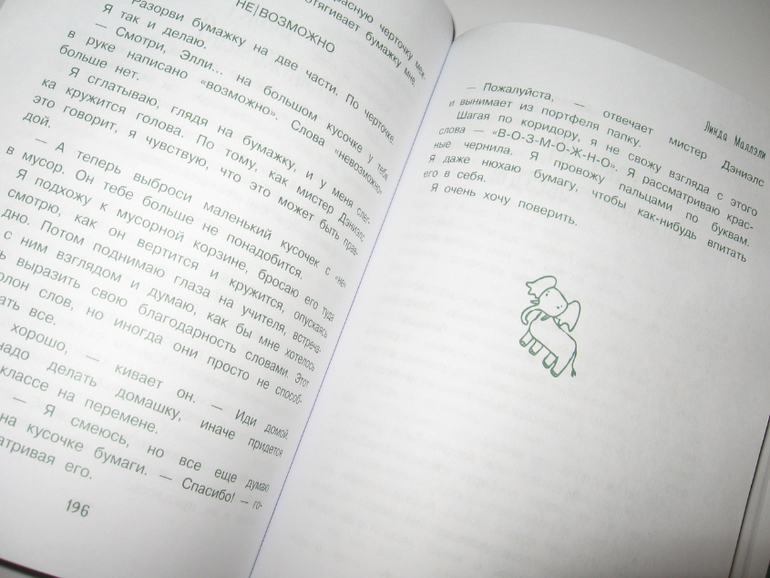 красную черточку меж-
отягивает бумажку мне.
НЕ/ВОЗМОЖНО
Разорви бумажку на две части. По черточке.
Я так и делаю.
— Смотри, Элли... на большом кусочке у тебя
в руке написано «возможно». Слова «невозможно»
больше нет.
Я сглатываю, глядя на бумажку, и у меня слег-
ка кружится голова. По тому, как мистер Дэниэлс
это говорит, я чувствую, что это может быть прав-
дой.
— А теперь выброси маленький кусочек с «не»
в мусор. Он тебе больше не понадобится.
Я подхожу к мусорной корзине, бросаю его туда
смотрю, как он вертится и кружится, опускаясь
дно. Потом поднимаю глаза на учителя, встреча-
с ним взглядом и думаю, как бы мне хотелось
ь выразить свою благодарность словами. Этот
олон слов, но иногда они просто не способ-
ать все.
хорошо, — кивает он. — Иди домой.
надо делать домашку, иначе придется
классе на перемене.
— Я смеюсь, но все еще думаю
на кусочке бумаги. — Спасибо! — го-
атривая его.
196
Линда Маллэли
— Пожалуйста, — отвечает мистер Дэниэлс
и вынимает из портфеля папку.
Шагая по коридору, я не свожу взгляда с этого
слова — «В-О-З-М-О-Ж-Н-О». Я рассматриваю крас-
ные чернила. Я провожу пальцами по буквам.
Я даже нюхаю бумагу, чтобы как-нибудь впитать
его в себя.
Я очень хочу поверить.